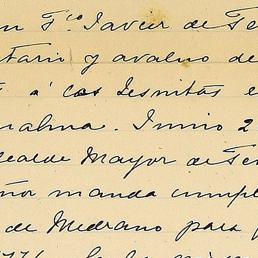 n Fco Javier de Te
tario y avaluo de
á los Jesuitas e
nalma. Junio 2
calde Mayor de Te
ñor manda cumpl
de Medrano para